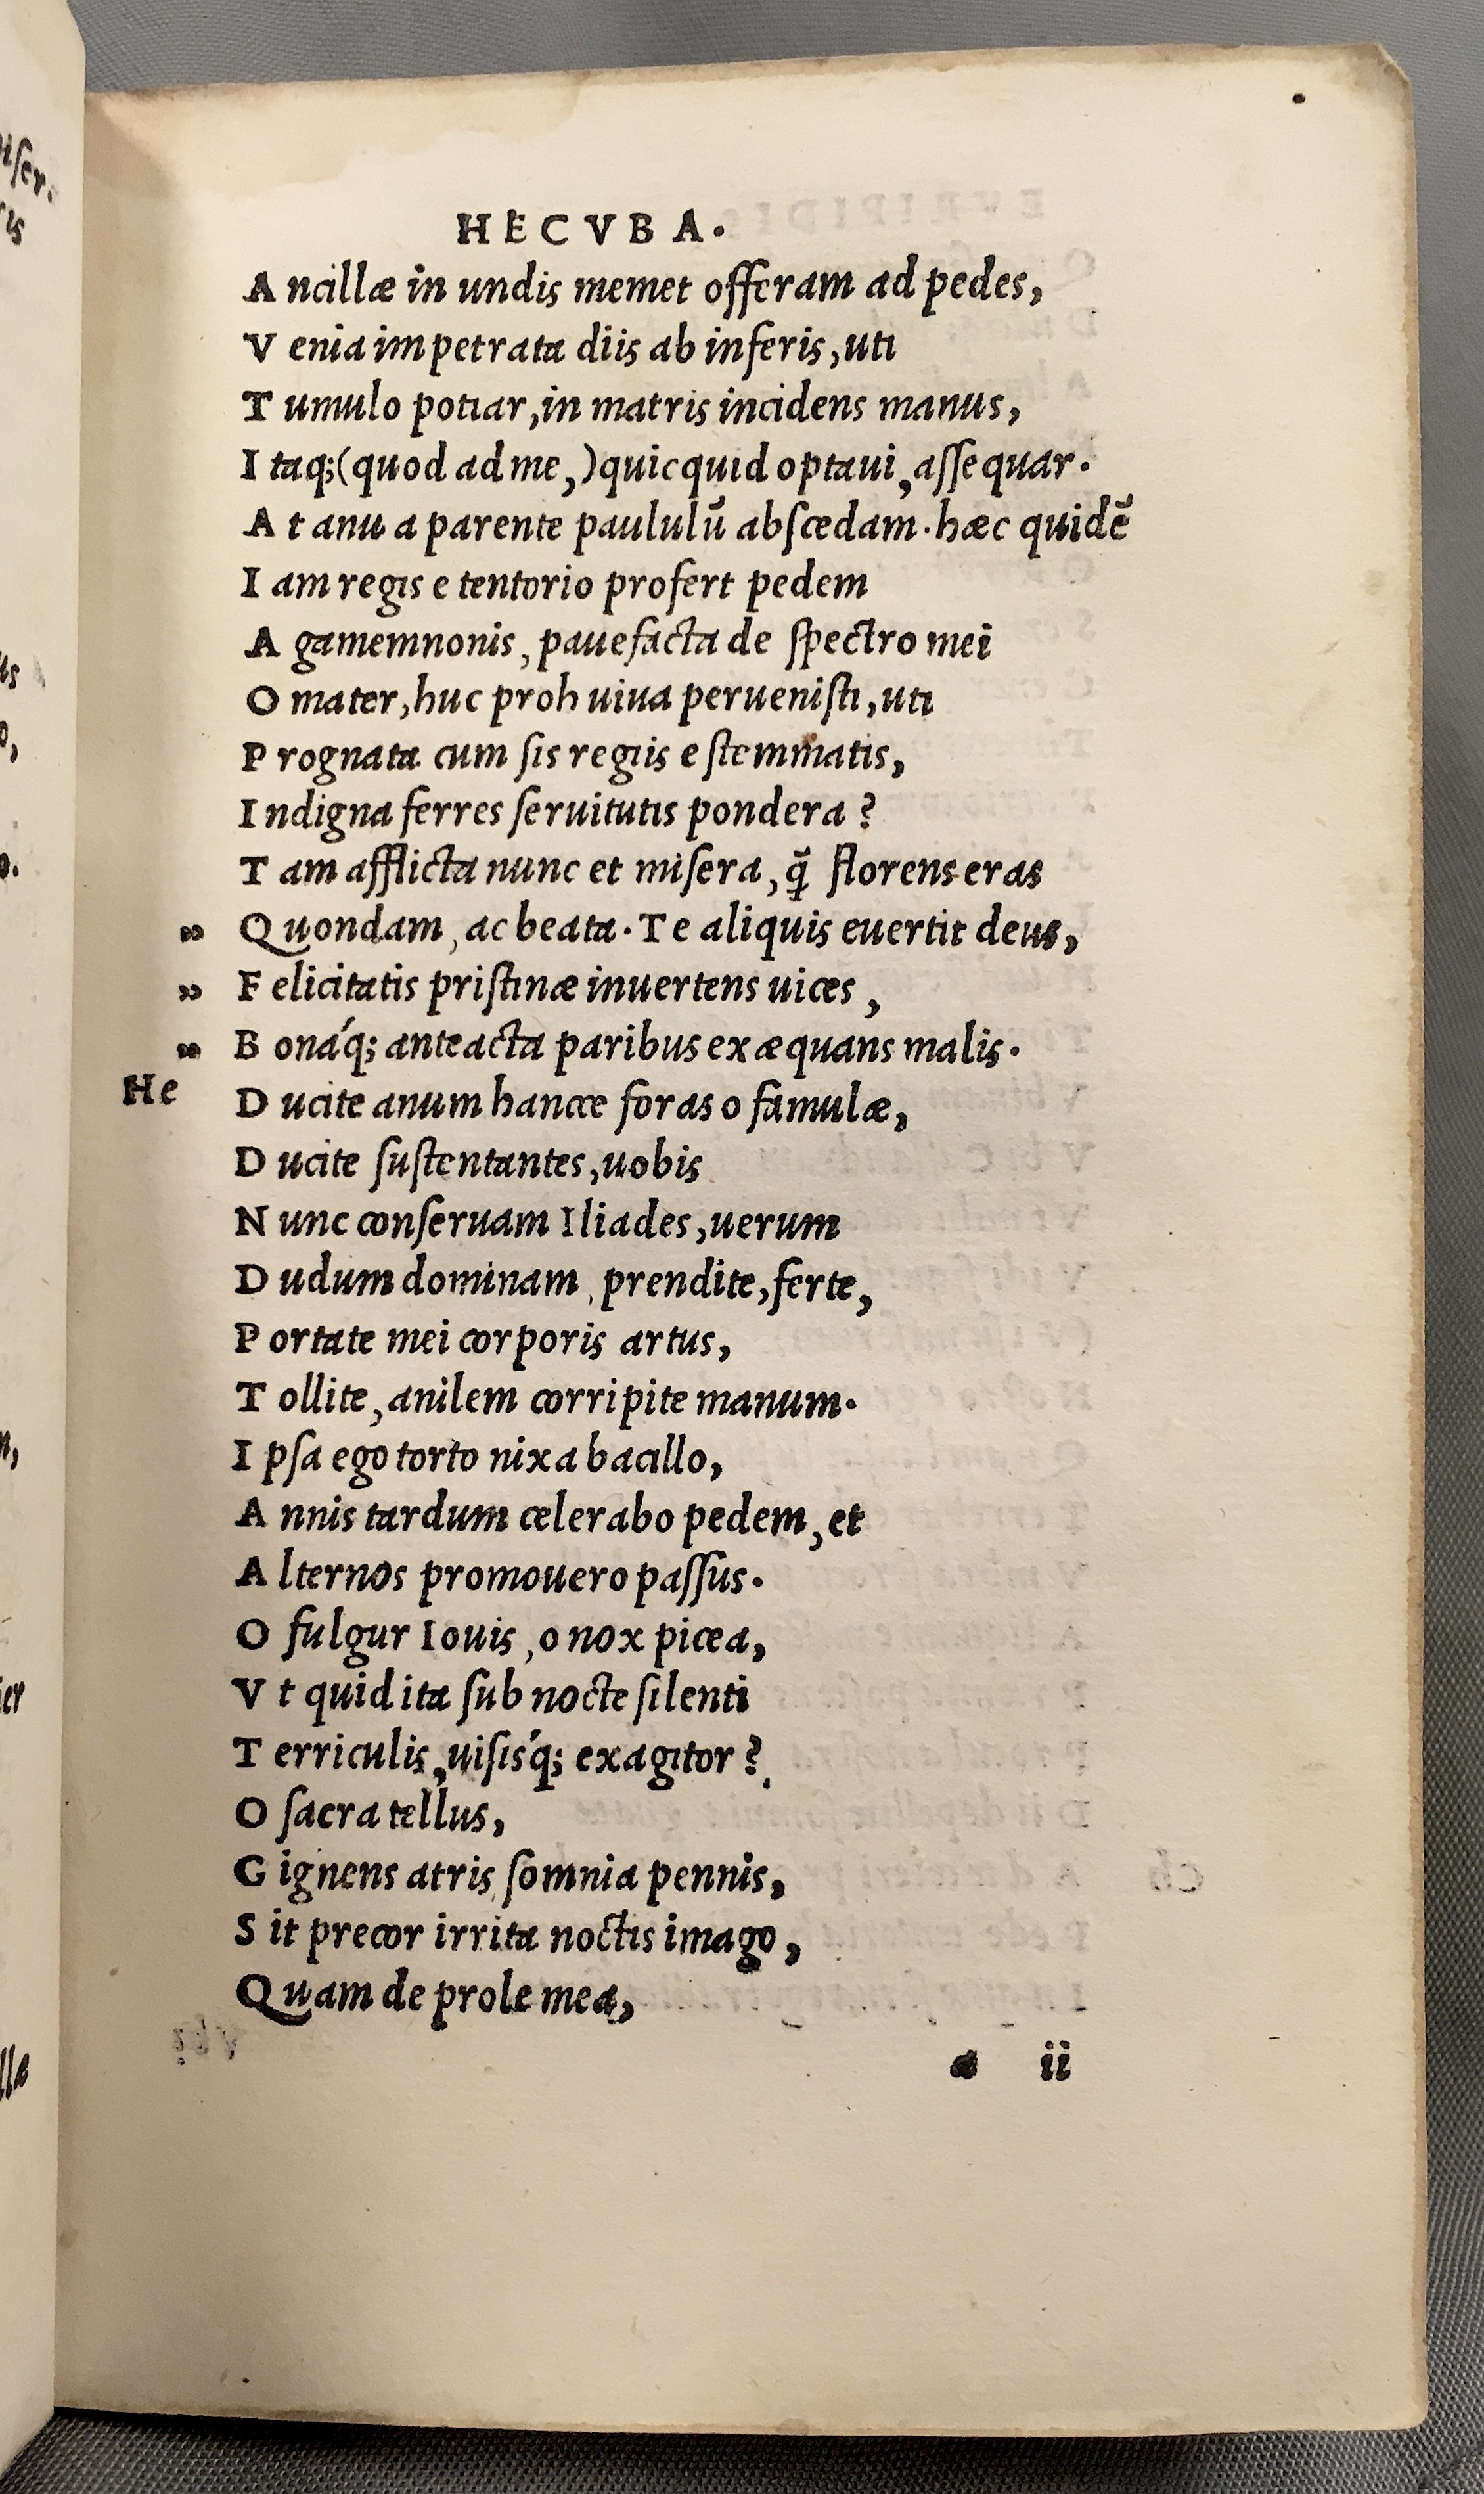 HECVBA.
Ancillæ in undis memet offeram ad pedes,
Venia impetrata diis ab inferis, uti
Tumulo potiar, in matris incidens manus,
Itaq;(quod ad me,)quicquid optaui, assequar.
At anu a parente paululū abscedam. hæc quidē
Iam regis e tentorio profert pedem
Agamemnonis, pauefacta de spectro mei
O mater, huc proh uiua peruenisti, uti
Prognata cum sis regiis e stemmatis,
Indigna ferres seruitutis pondera?
Tam afflicta nunc et misera, q̄ florens eras
" Quondam, ac beata. Te aliquis euertit deus,
" Felicitatis pristinæ inuertens uices,
" Bonáq; anteacta paribus exæquans malis.
He Ducite anum hancce foras o famulæ,
Ducite sustentantes, uobis
Nunc conseruam Iliades, uerum
Dudum dominam, prendite, ferte,
Portate mei corporis artus,
Tollite, anilem corripite manum.
Ipsa ego torto nixa bacillo,
Annis tardum celerabo pedem, et
Alternos promouero passus.
O fulgur Iouis, o nox picea,
Vt quid ita sub nocte silenti
Terriculis, uisis'q; exagitor?
O sacra tellus,
Gignens atris somnia pennis,
Sit precor irrita noctis imago,
Quam de prole mea,
a ii